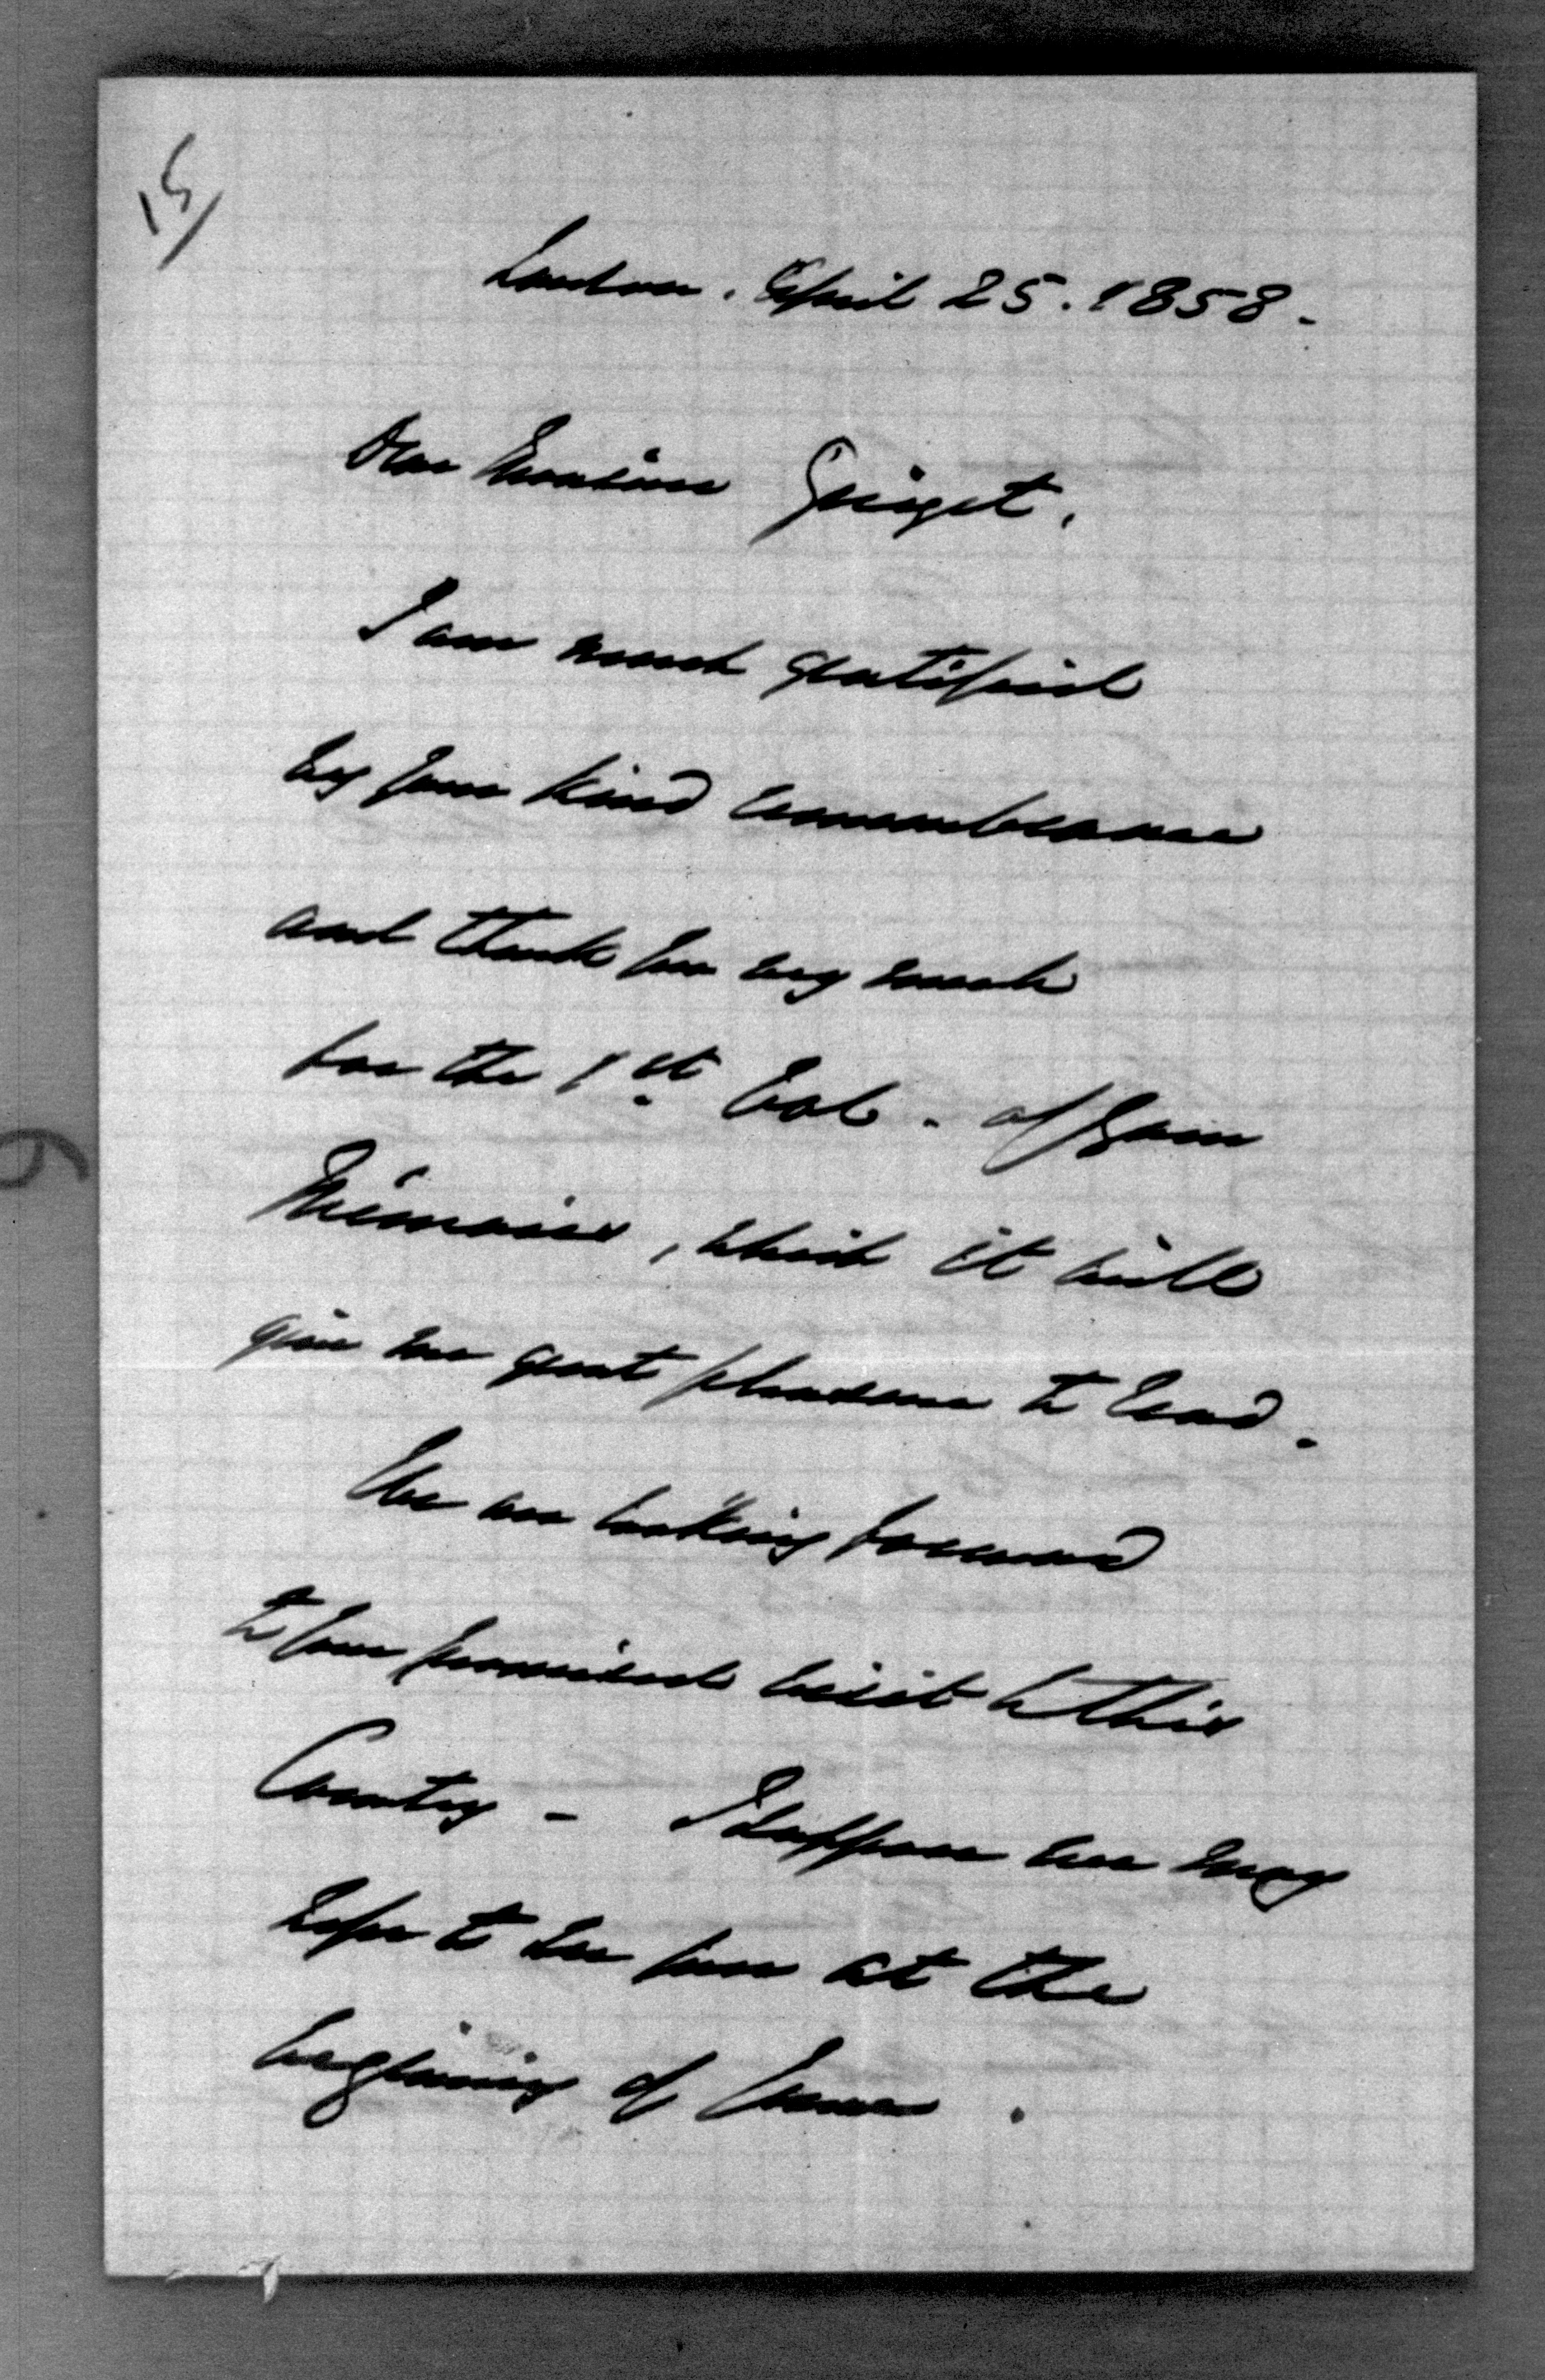 15/
London. April 25. 1858.
Dear Monsieur Guizot,
I am much gratified
by your kind remembrance
and thank you very much
for the 1st Vol. of your
Mémoires, which it will
give me great pleasure to read.
We are looking forward
to your promised visit to this
Country - I suppose we may
hope to see you at the
beginning of June.